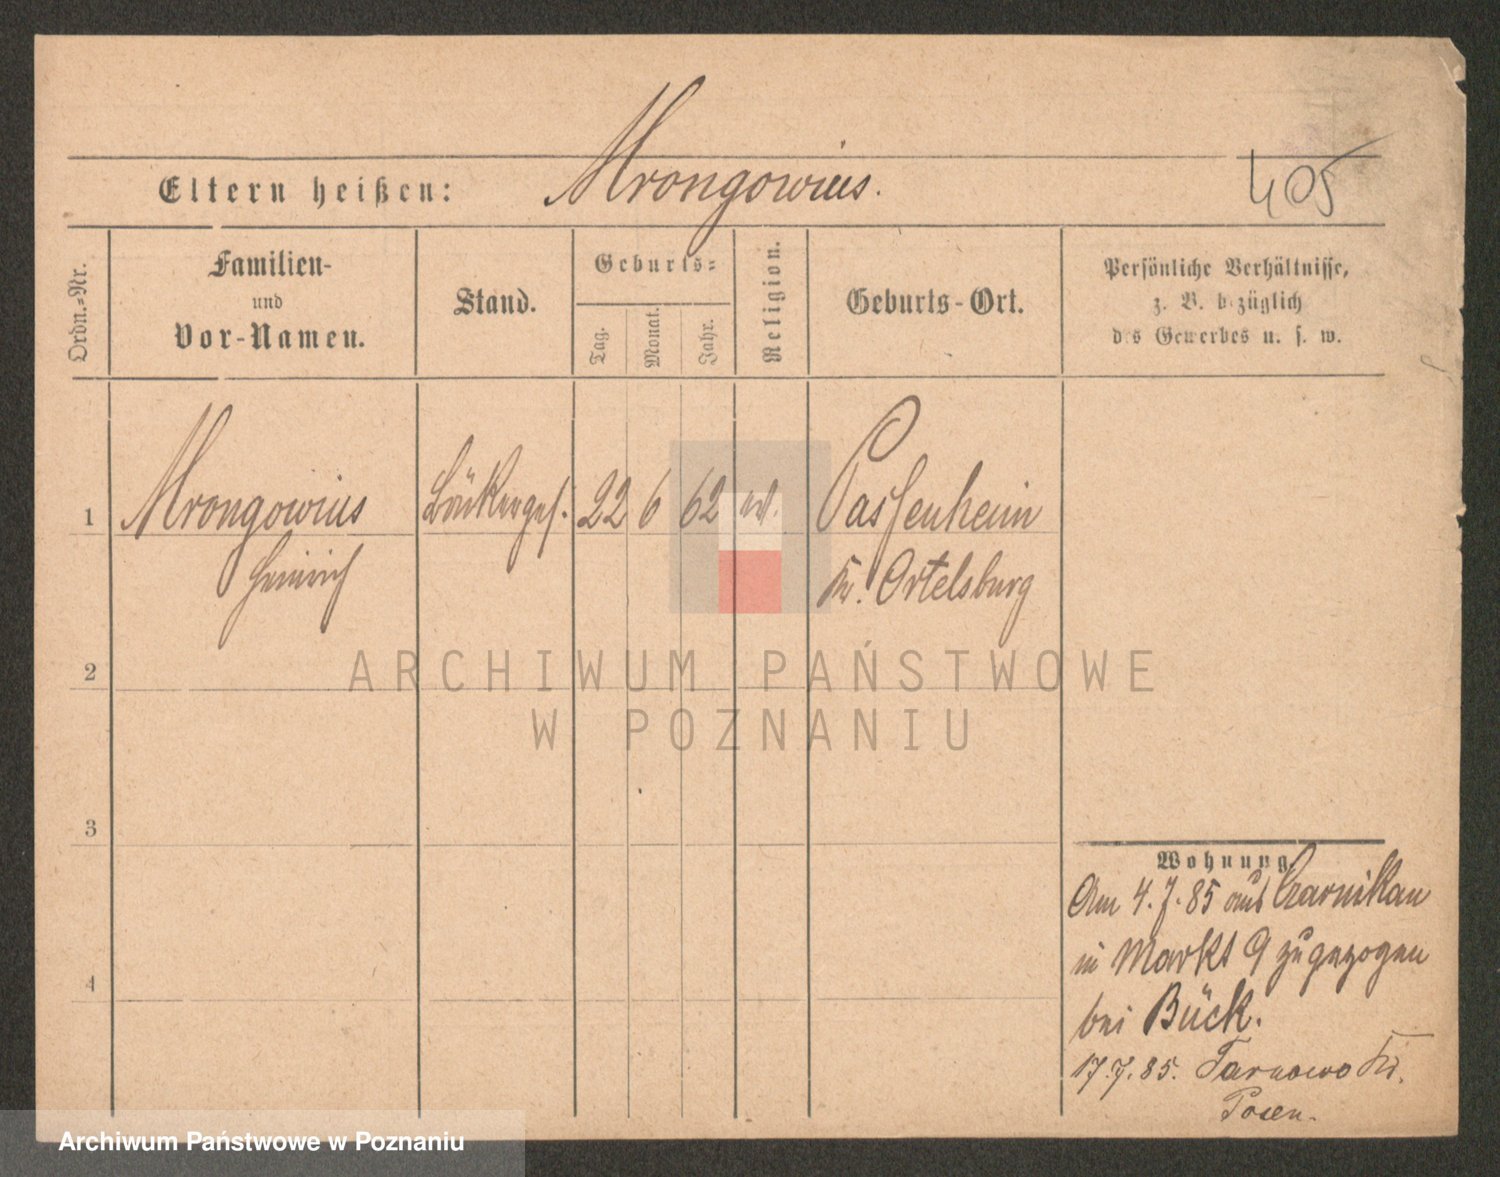 Mrongowius.
405
Eltern heißen:
Ordn.=Nr.
Familien-
und
Vor-Namen.
Stand.
Geburts=
Tag.
Monat.
Jahr.
Religion.
Geburts-Ort.
Persönliche Verhältnisse,
z. B. bezüglich
des Gewerbes u. s. w.
1 Mrongowius 22 6 62 ev. Passenheim
Heinrich Kr. Ortelsburg
2
3
4
Wohnung.
Am 4.7.85 aus Czarnikau
in Markt 9 zugezogen
bei Bück.
17.7.85. Tarnowo Kr.
Posen.
ARCHIWUM PAŃSTWOWE
W POZNANIU
Archiwum Państwowe w Poznaniu